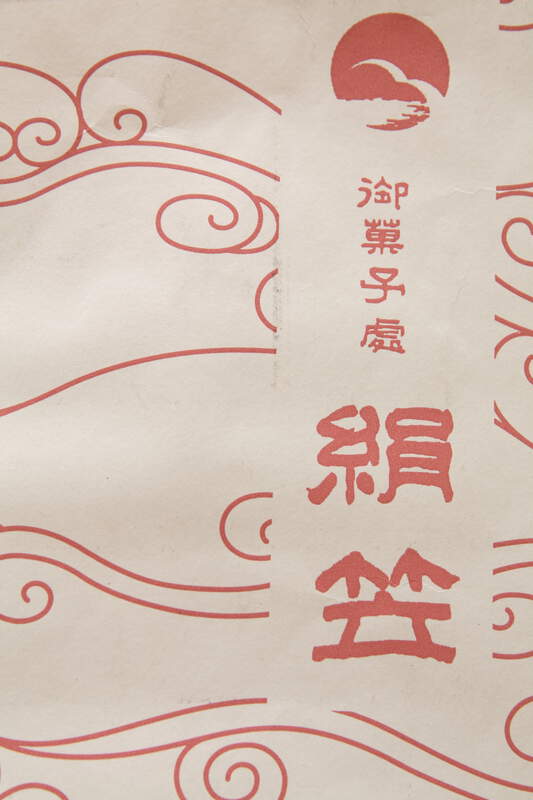 御菓子處
絹笠